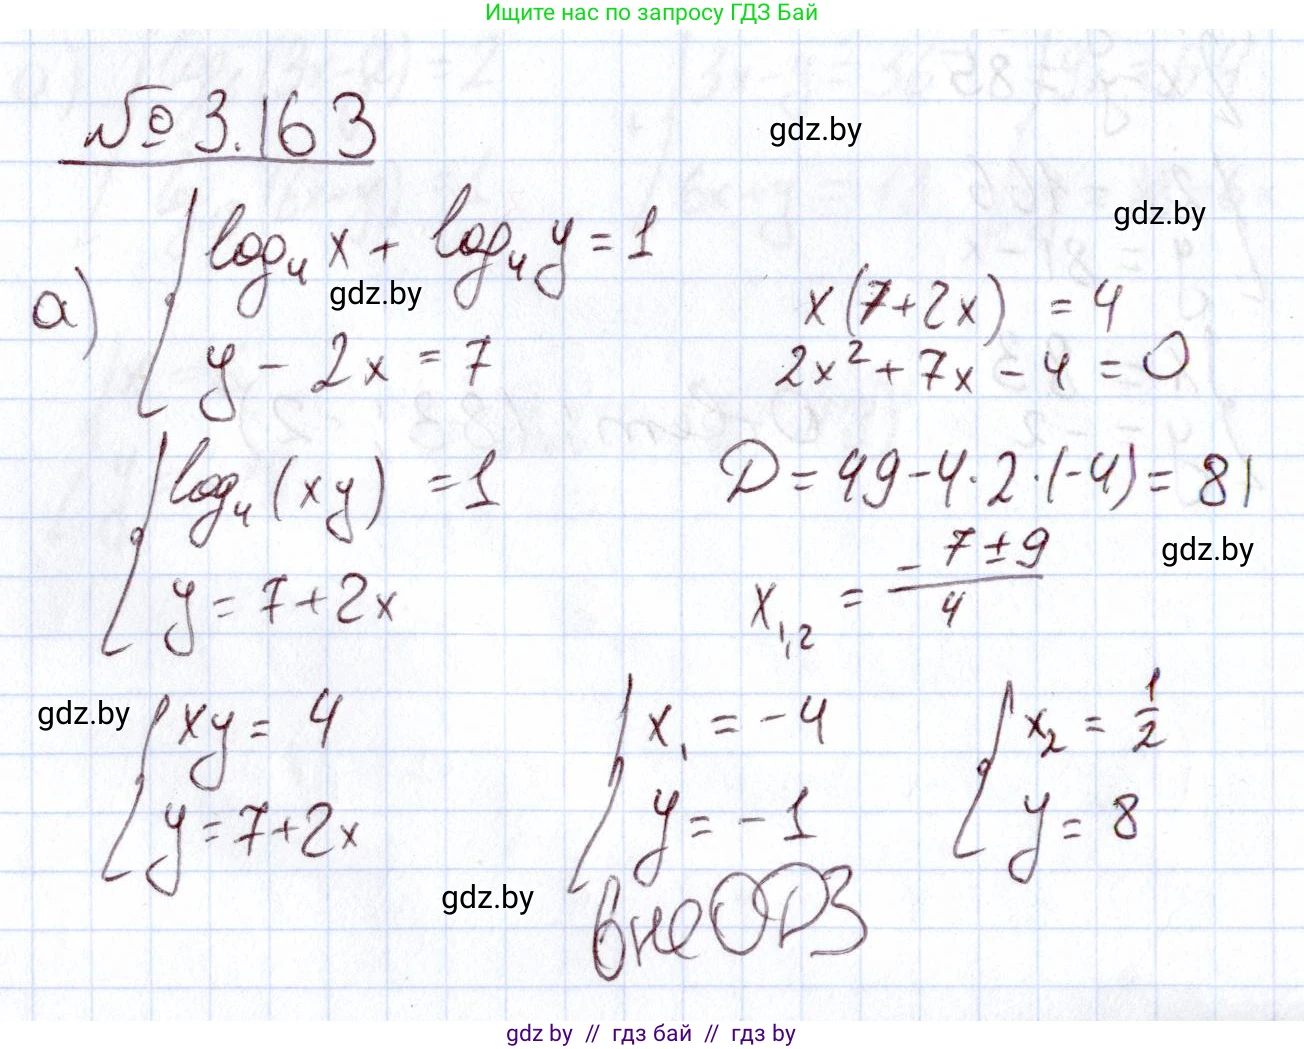 Ищите нас по запросу ГДЗ Бай
№ 3.163
gdz.by
gdz.by
а) { log₄ x + log₄ y = 1
gdz.by
y - 2x = 7
{ log₄ (xy) = 1
y = 7 + 2x
gdz.by
{ xy = 4
y = 7 + 2x
x(7 + 2x) = 4
2x² + 7x - 4 = 0
D = 49 - 4 · 2 · (-4) = 81
gdz.by
x₁,₂ = (-7 ± 9)/4
{ x₁ = -4
y = -1
вне ОДЗ
{ x₂ = 1/2
y = 8
gdz.by
gdz by // гдз бай // гдз by